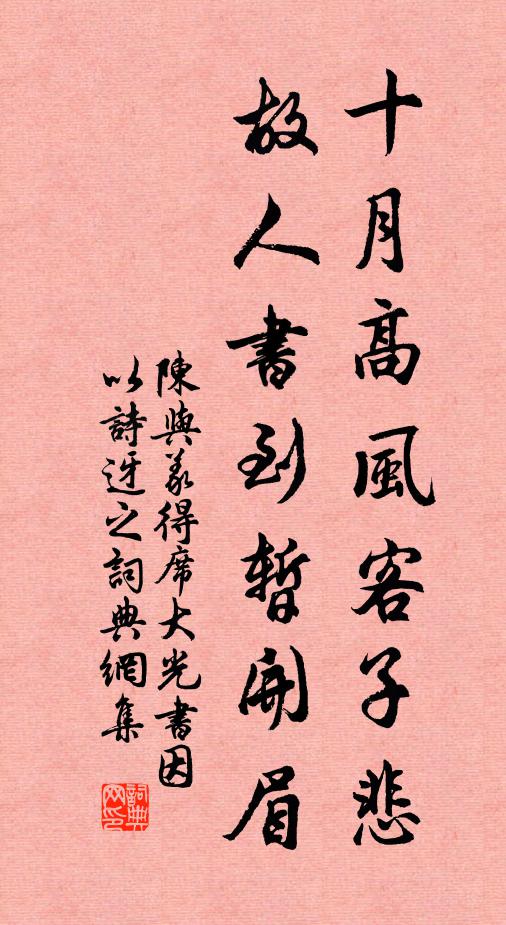 十月高風客子悲
故人書到暫開眉
陳與義得席大光書因
以詩迓之詞典網集
詞典网印